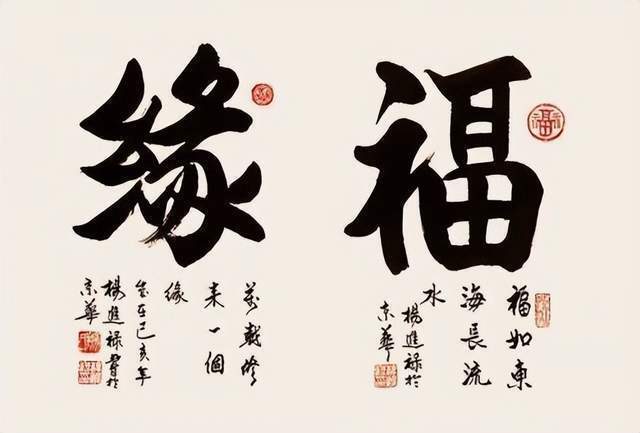 福
福如東
海長流
水
楊進禄於
京華
緣
萬載修
来一個
緣
岁在己亥年
楊進禄書於
京華